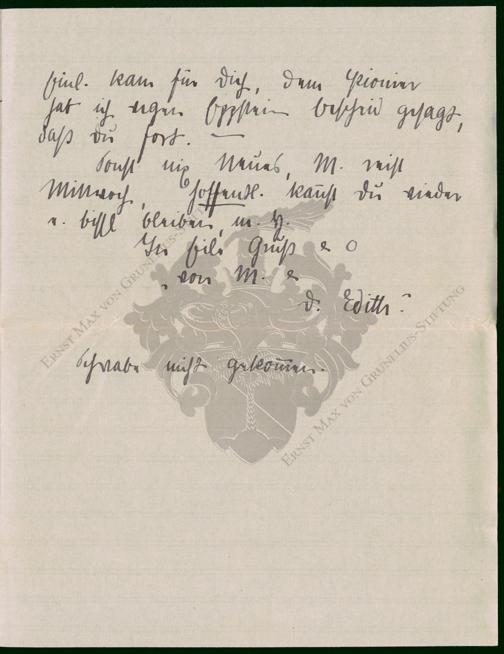 beil. kam für Dich, dem Pionier
hat ich wegen Eppstein bescheid gesagt,
daß du fort. —
Sonst nix Neues, M. reist
Mittwoch, hoffentl. kannst Du wieder
e. bissl bleiben, m. H.
In Eile Gruß e O
von M. e
D. Edith.
Schwabe nicht gekommen.
ERNST MAX VON GRUNELIUS-STIFTUNG
ERNST MAX VON GRUNELIUS-STIFTUNG